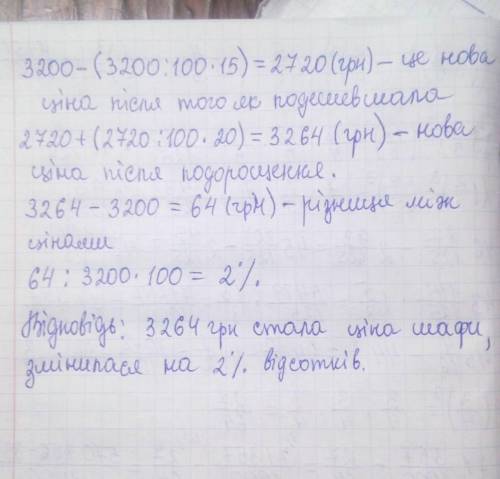 3200-(3200:100·15)=2720(грн)- це нова
ціна після того як подешевшала
2720+(2720:100·20)=3264(грн)-нова
ціна після подорощення.
3264-3200=64(грн)-різниця між
цінами
64:3200·100= 2%.
Відповідь: 3264 грн стала ціна шафи,
змінилася на 2% відсотків.